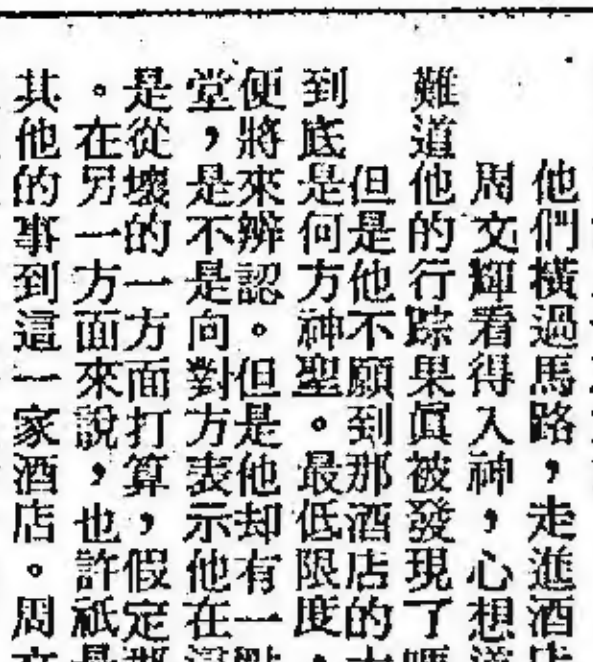 他們橫過馬路，走進酒店
周文輝看得入神，心想
難道他的行踪果眞被發現了嗎
但是他不願到那酒店的
到底是何方神聖。最低限度，
便將來辨認。但是他却有一點
堂，是不是向對方表示他在
是從壞的一方面打算，假定那
。在另一方面來說，也許祇是
其他的事到這一家酒店。周文